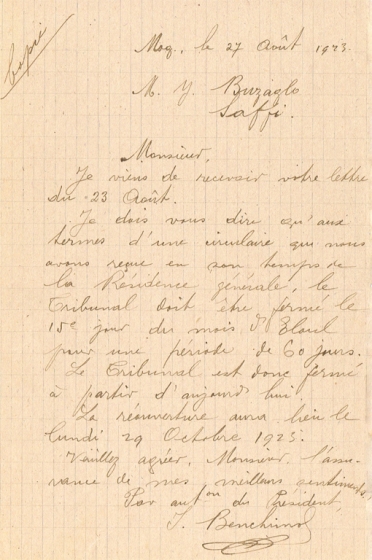 Copie
Mog, le 27 Août 1923.
M. Y. Buzaglo
Saffi.
Monsieur,
Je viens de recevoir votre lettre
du 23 Août.
Je dois vous dire qu'aux
termes d'une circulaire que nous
avons reçue en son temps de
la Résidence générale, le
Tribunal doit être fermé le
15e jour du mois d'Eloul
pour une période de 60 jours.
Le Tribunal est donc fermé
à partir d'aujourd'hui.
La réouverture aura lieu le
lundi 29 Octobre 1923.
Veuillez agréer, Monsieur, l'assu-
rance de mes meilleurs sentiments.
Par auton du Président,
Benchimol